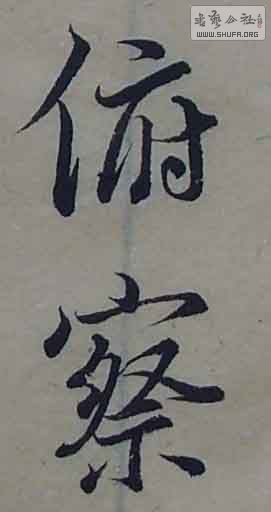 俯察
书艺公社
WWW.SHUFA.ORG